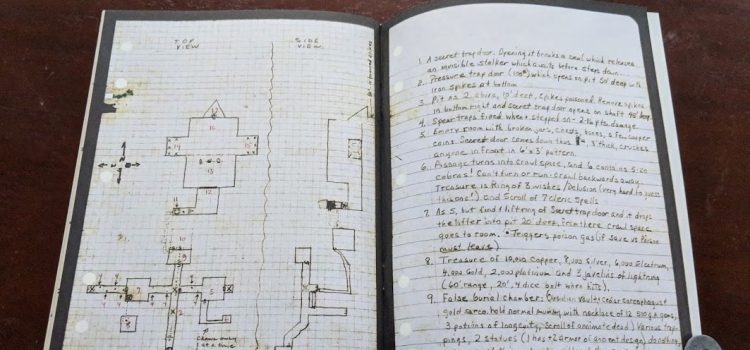 TOP
VIEW
SIDE
VIEW
16
14
15
13
12
11
10
9
8
7
5
1. A secret trap door: Opening it breaks a seal which releases
an invisible stalker which awaits before steps down.
2. Pressure trap door (100#) which opens on pit 60' deep with
iron spikes at bottom
3. Pit no. 2 above, 10' deep, spikes poisoned. Remove spikes
in bottom right and secret trap door opens on shaft 40' deep.
4. Spear traps fired when stepped on - 2-16 pts. damage
5. Empty room with broken jars, chests, bones, a few copper
coins. Secret door comes down thus 3' thick, crushes
anyone in front in 6' x 3' pattern.
6. Passage turns into crawl space, and 6 contains 5-20
cobras! Can't turn or run - crawl backwards away
Treasure is Ring of 3 wishes/Delusion (very hard to guess
this one!) and Scroll of 7 cleric spells
7. As 5, but find & lifting of secret trap door and it drops
the lifter into pit 20' deep, from there crawl space
goes to room. *Triggers poison gas (if save vs poison
must leave)
8. Treasure of 10,000 copper, 8,000 silver, 6,000 electrum,
4,000 gold, 2,000 platinum and 3 javelins of lightning
(60' range, 20', 4 dice bolt when hits).
9. False burial chamber: Obsidian Vault, cedar sarcophagus,
gold sarco. hold normal mummy with necklace of 12 500 g.p. gems,
3 potions of longevity, scroll of animate dead) Various trap-
pings, 2 statues (1 has +2 armor of ancient design)